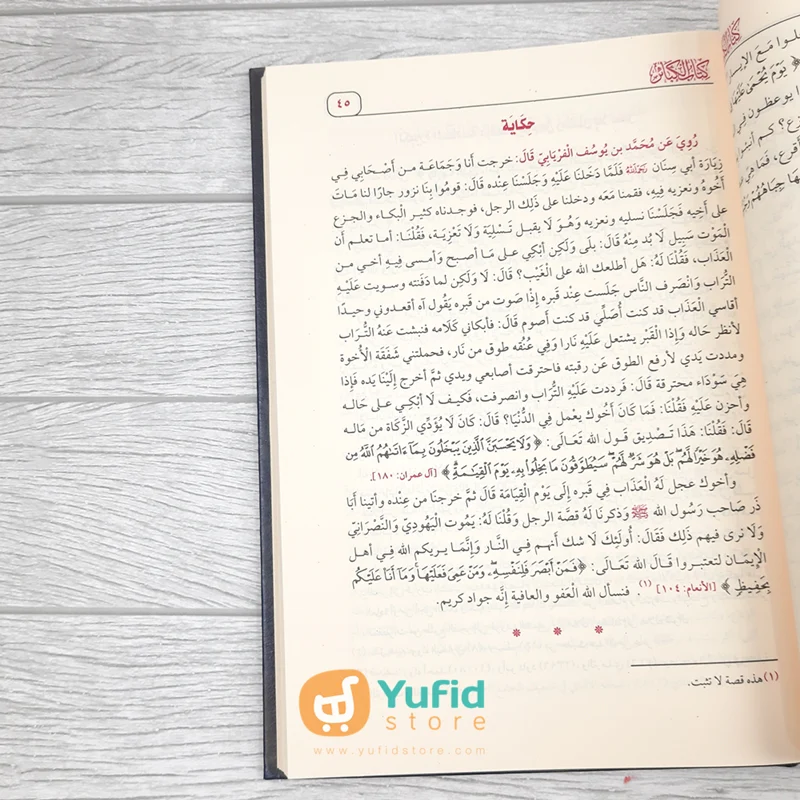 كتاب الكبائر
٤٥
حِكَايَة
رُوِيَ عَن مُحَمَّد بن يُوسُف الْفرْيَابِيّ قَالَ: خرجت أَنا وَجَمَاعَة من أَصْحَابِي فِي
زِيَارَة أبي سِنَان رَحِمَهُ اللَّهُ فَلَمَّا دَخَلنَا عَلَيْهِ وَجَلَسْنَا عِنْده قَالَ: قومُوا بِنَا نزور جارا لنا مَاتَ
أَخُوهُ ونعزيه فِيهِ، فقمنا مَعَه ودخلنا على ذَلِك الرجل، فوجدناه كثير الْبكاء والجزع
على أَخِيه فَجَلَسْنَا نسليه ونعزيه وَهُوَ لَا يقبل تَسْلِيَة وَلَا تَعْزِيَة، فَقُلْنَا: أما تعلم أَن
الْمَوْت سَبِيل لَا بُد مِنْهُ قَالَ: بلَى وَلَكِن أبْكِي على مَا أصبح وَأمسى فِيهِ أخي من
الْعَذَاب، فَقُلْنَا لَهُ: هَل أطلعك الله على الْغَيْب؟ قَالَ: لَا وَلَكِن لما دَفَنته وسويت عَلَيْهِ
التُّرَاب وَانْصَرف النَّاس جَلَست عِنْد قَبره إِذَا صَوت من قَبره يَقُول آه أقعدوني وحيدًا
أقاسي الْعَذَاب قد كنت أُصَلِّي قد كنت أَصوم قَالَ: فأبكاني كَلَامه فنبشت عَنهُ التُّرَاب
لأنظر حَاله وَإِذَا الْقَبْر يشتعل عَلَيْهِ نَارا وَفِي عُنُقه طوق من نَار، فحملتني شَفَقَة الْأُخوة
ومددت يَدي لأرفع الطوق عَن رقبته فاحترقت أصابعي ويدي ثمَّ أخرج إِلَيْنَا يَده فَإِذَا
هِيَ سَوْدَاء محترقة قَالَ: فَرددت عَلَيْهِ التُّرَاب وانصرفت، فَكيف لَا أبْكِي على حَاله
وأحزن عَلَيْهِ فَقُلْنَا: فَمَا كَانَ أَخُوك يعْمل فِي الدُّنْيَا؟ قَالَ: كَانَ لَا يُؤَدِّي الزَّكَاة من مَاله
قَالَ: فَقُلْنَا: هَذَا تَصْدِيق قَول الله تَعَالَى: ﴿وَلَا يَحْسَبَنَّ الَّذِينَ يَبْخَلُونَ بِمَا ءَاتَىٰهُمُ اللَّهُ مِن
فَضْلِهِ هُوَ خَيْرًا لَّهُم بَلْ هُوَ شَرٌّ لَّهُمْ سَيُطَوَّقُونَ مَا بَخِلُوا بِهِ يَوْمَ الْقِيَامَةِ﴾ [آل عمران: ١٨٠].
وأخوك عجل لَهُ الْعَذَاب فِي قَبره إِلَى يَوْم الْقِيَامَة قَالَ ثمَّ خرجنَا من عِنْده وأتينا أَبَا
ذَر صَاحب رَسُول الله ﷺ وَذكرنَا لَهُ قصَّة الرجل وَقُلْنَا لَهُ: يَمُوت الْيَهُودِيّ وَالنَّصْرَانِيّ
وَلَا نرى فيهم ذَلِك فَقَالَ: أُولَئِكَ لَا شكّ أَنهم فِي النَّار وَإِنَّمَا يريكم الله فِي أهل
الْإِيمَان لتعتبروا قَالَ الله تَعَالَى: ﴿فَمَنْ أَبْصَرَ فَلِنَفْسِهِ وَمَنْ عَمِيَ فَعَلَيْهَا وَمَا أَنَا عَلَيْكُم
بِحَفِيظٍ﴾ [الأنعام: ١٠٤] (١). فنسأل الله الْعَفو والعافية إِنَّه جواد كريم.
* * *
(١) هذه قصة لا تثبت.
Yufid
store
www.yufidstore.com